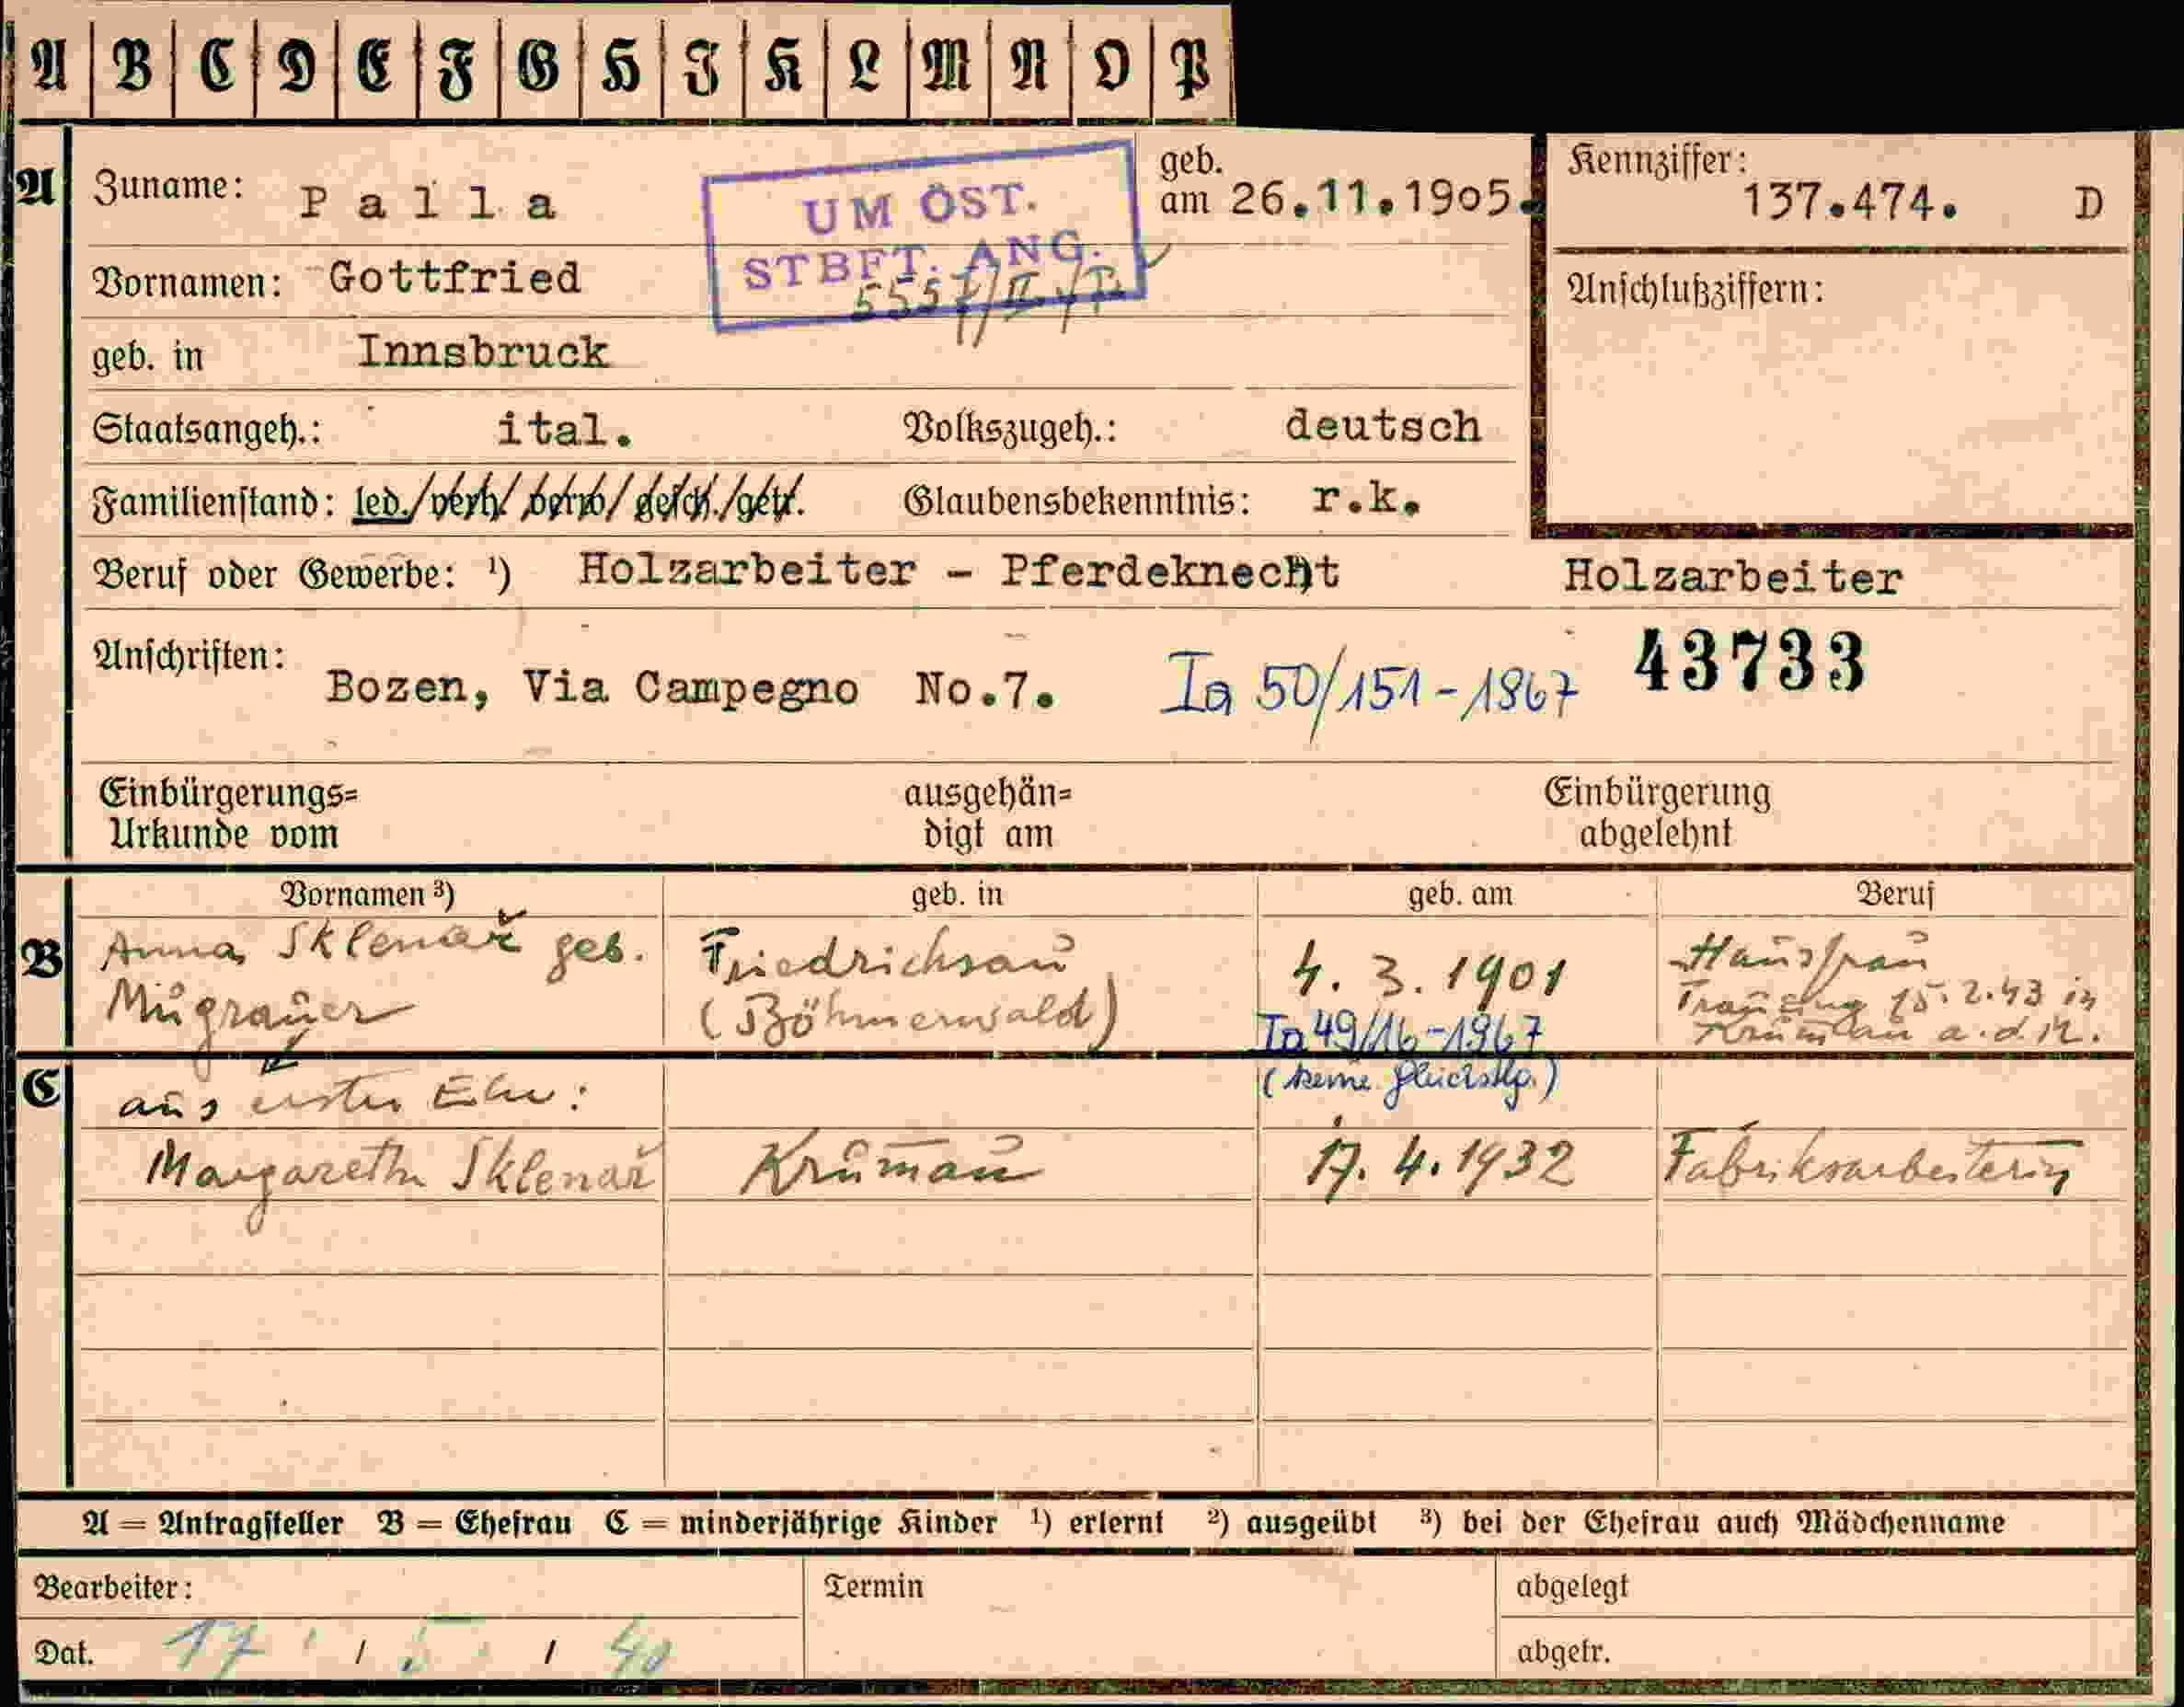 A B C D E F G H I K L M N O P
A Zuname: Palla
UM ÖST.
STBFT. ANG.
geb.
am 26.11.1905.
Kennziffer:
137.474. D
Vornamen: Gottfried
Anschlußziffern:
geb. in Innsbruck
Staatsangeh.: ital. Volkszugeh.: deutsch
Familienstand: led./verh/verw/gesch./getr. Glaubensbekenntnis: r.k.
Beruf oder Gewerbe: ¹) Holzarbeiter - Pferdeknecht Holzarbeiter
Anschriften: Bozen, Via Campegno No.7. Ia 50/151-1967 43733
Einbürgerungs=
Urkunde vom
ausgehän=
digt am
Einbürgerung
abgelehnt
Vornamen ³) geb. in geb. am Beruf
B Anna Sklenař geb.
Mugrauer
Friedrichsau
(Böhmerwald)
4. 3. 1901
Ia 49/16-1967
Hausfrau
Trauung 15.2.43 in
Krummau a.d.M.
C aus erster Ehe:
(keine Gleichstlg.)
Margarethe Sklenař Krumau 17. 4. 1932 Fabriksarbeiterin
A = Antragsteller B = Ehefrau C = minderjährige Kinder ¹) erlernt ²) ausgeübt ³) bei der Ehefrau auch Mädchenname
Bearbeiter: Termin abgelegt
Dat. 17 / 5 / 40 abgetr.